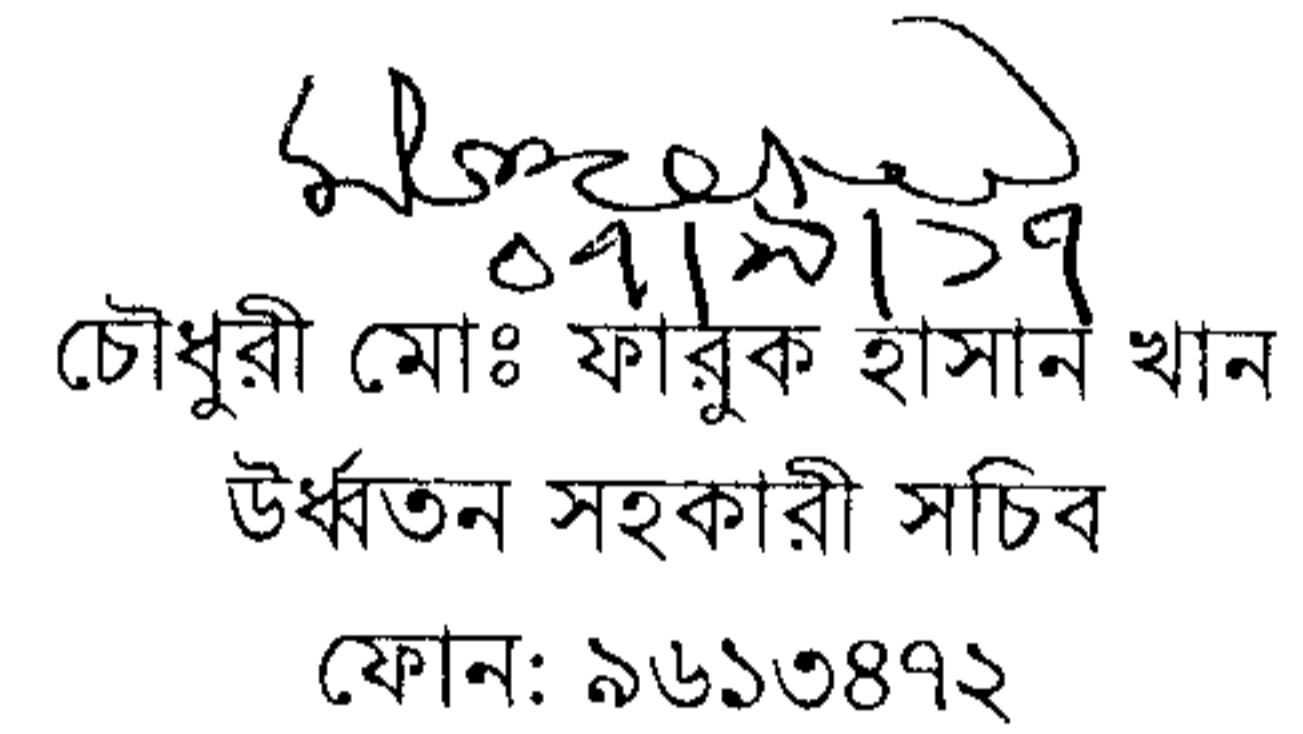 ০৭|৯|১৭
চৌধুরী মোঃ ফারুক হাসান খান
উর্ধ্বতন সহকারী সচিব
ফোন: ৯৬১৩৪৭২